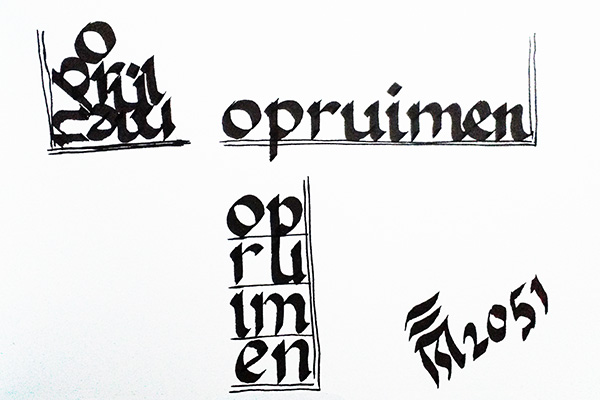 opruimen
op
ru
im
en
2051